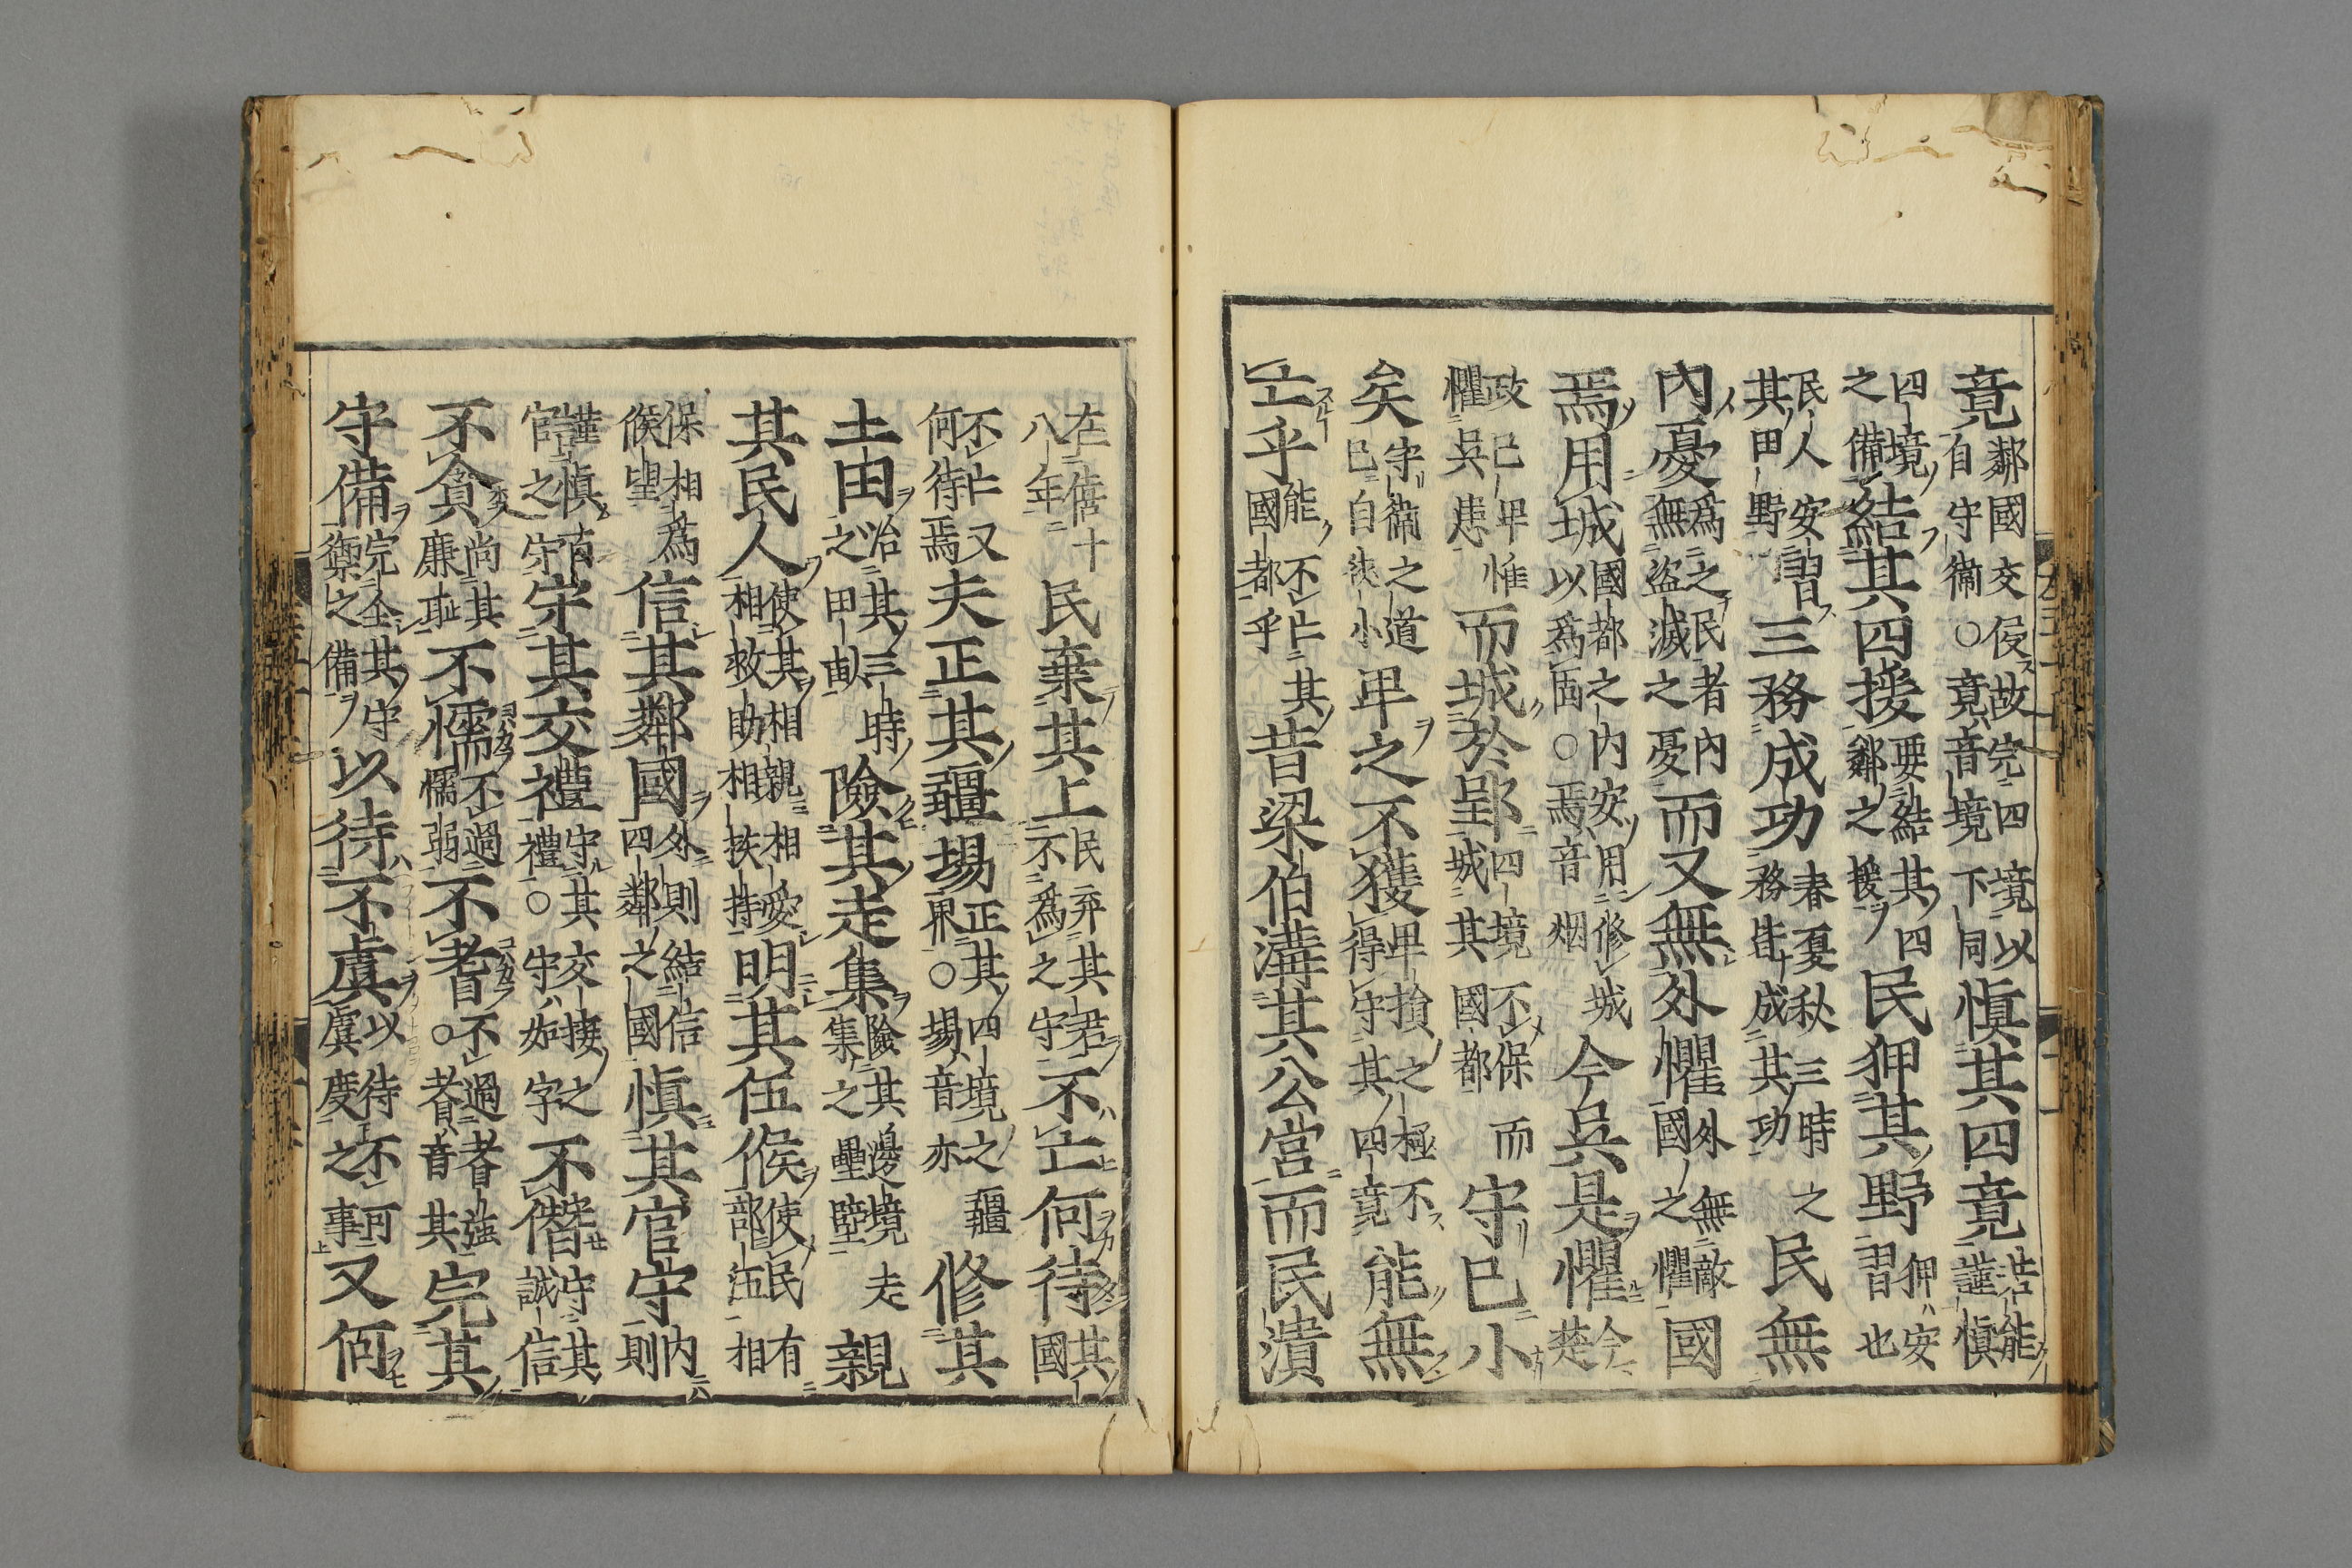 竟鄰國交侵故完四境以自守備○竟音境下同慎其四竟苦能謹慎
四境之備結其四援要結其四鄰之援民狎其野狎安習也
民人安習其田野三務成功春夏秋三時之務皆成其功民無
內憂爲之民者內無盜滅之憂而又無外懼外無敵國之懼國
焉用城國都之内安用修城以爲固○焉音烟今吳是懼今楚
政已卑惟懼吳患而城於郢四境不保而城其國都守已小
矣守備之道已自狹小卑之不獲卑損之極不得守其四竟能無
亡乎能不亡其國都乎昔梁伯溝其公宮而民潰
在僖十八年民棄其上民弃其君不爲之守不亡何待其國
不亡又何待焉夫正其疆埸正其四境之疆界○埸音亦修其
土田治其三時之田畝險其走集險其邊境走集之壘壁親
其民人使其相親相愛相救助相挾持明其伍候使民有部伍相
保相爲候望信其鄰國外則結信四鄰之國慎其官守內則
謹慎百官之守守其交禮守其交接之禮○守如字不僭守其誠信
不貪尚其廉耻不懦不過懦弱不耆○不過耆強耆音其完其
守備完全其守禦之備以待不虞以待不可虞度之事又何